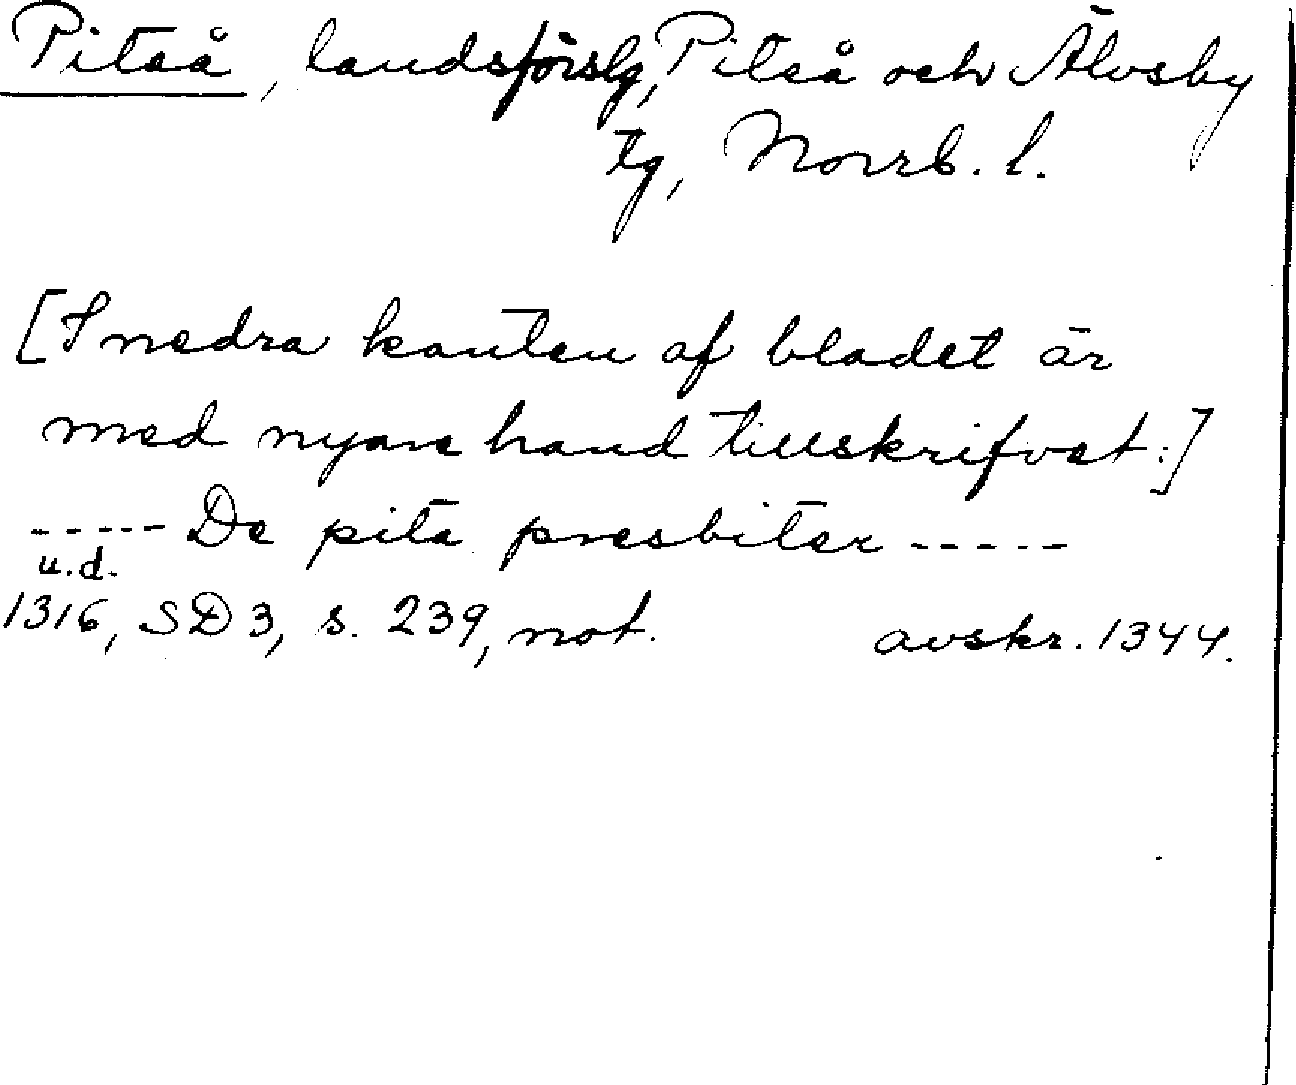 Piteå, landsförslg, Piteå och Älvsby
tg, Norrb. l.
[I nedra kanten af bladet är
med nyare hand tillskrifvet:]
----- De pita presbiter -----
u.d.
1316, SD 3, s. 239, not. avskr. 1344.